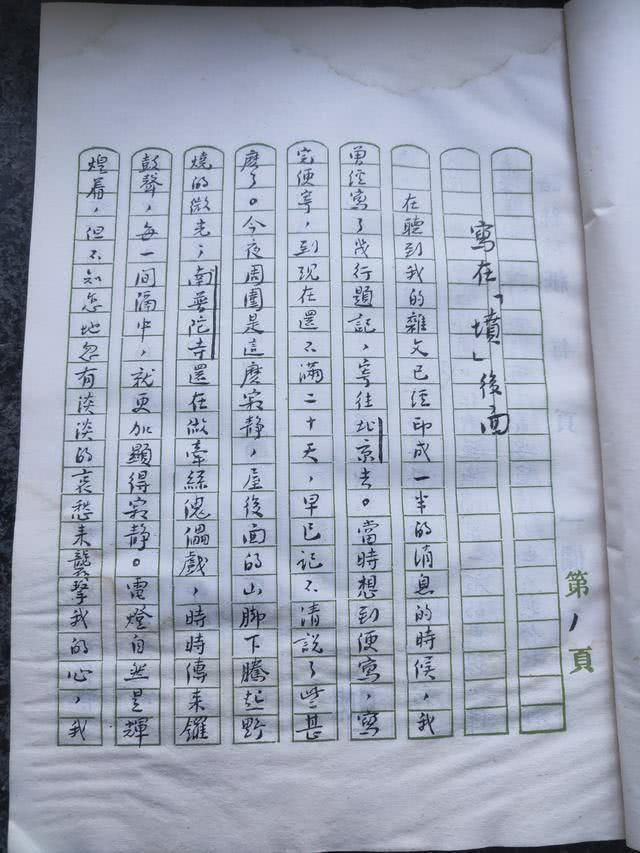 第1頁
寫在「墳」後面
在聽到我的雜文已經印成一半的消息的時候，我
曾經寫了幾行題記，寄往北京去。當時想到便寫，寫
完便寄，到現在還不滿二十天，早已記不清說了些甚
麽了。今夜周圍是這麽寂静，屋後面的山脚下騰起野
燒的微光；南普陀寺還在做牽絲傀儡戲，時時傳來鑼
鼓聲，每一間隔中，就更加顯得寂静。電燈自然是輝
煌着，但不知怎地忽有淡淡的哀愁来襲擊我的心，我